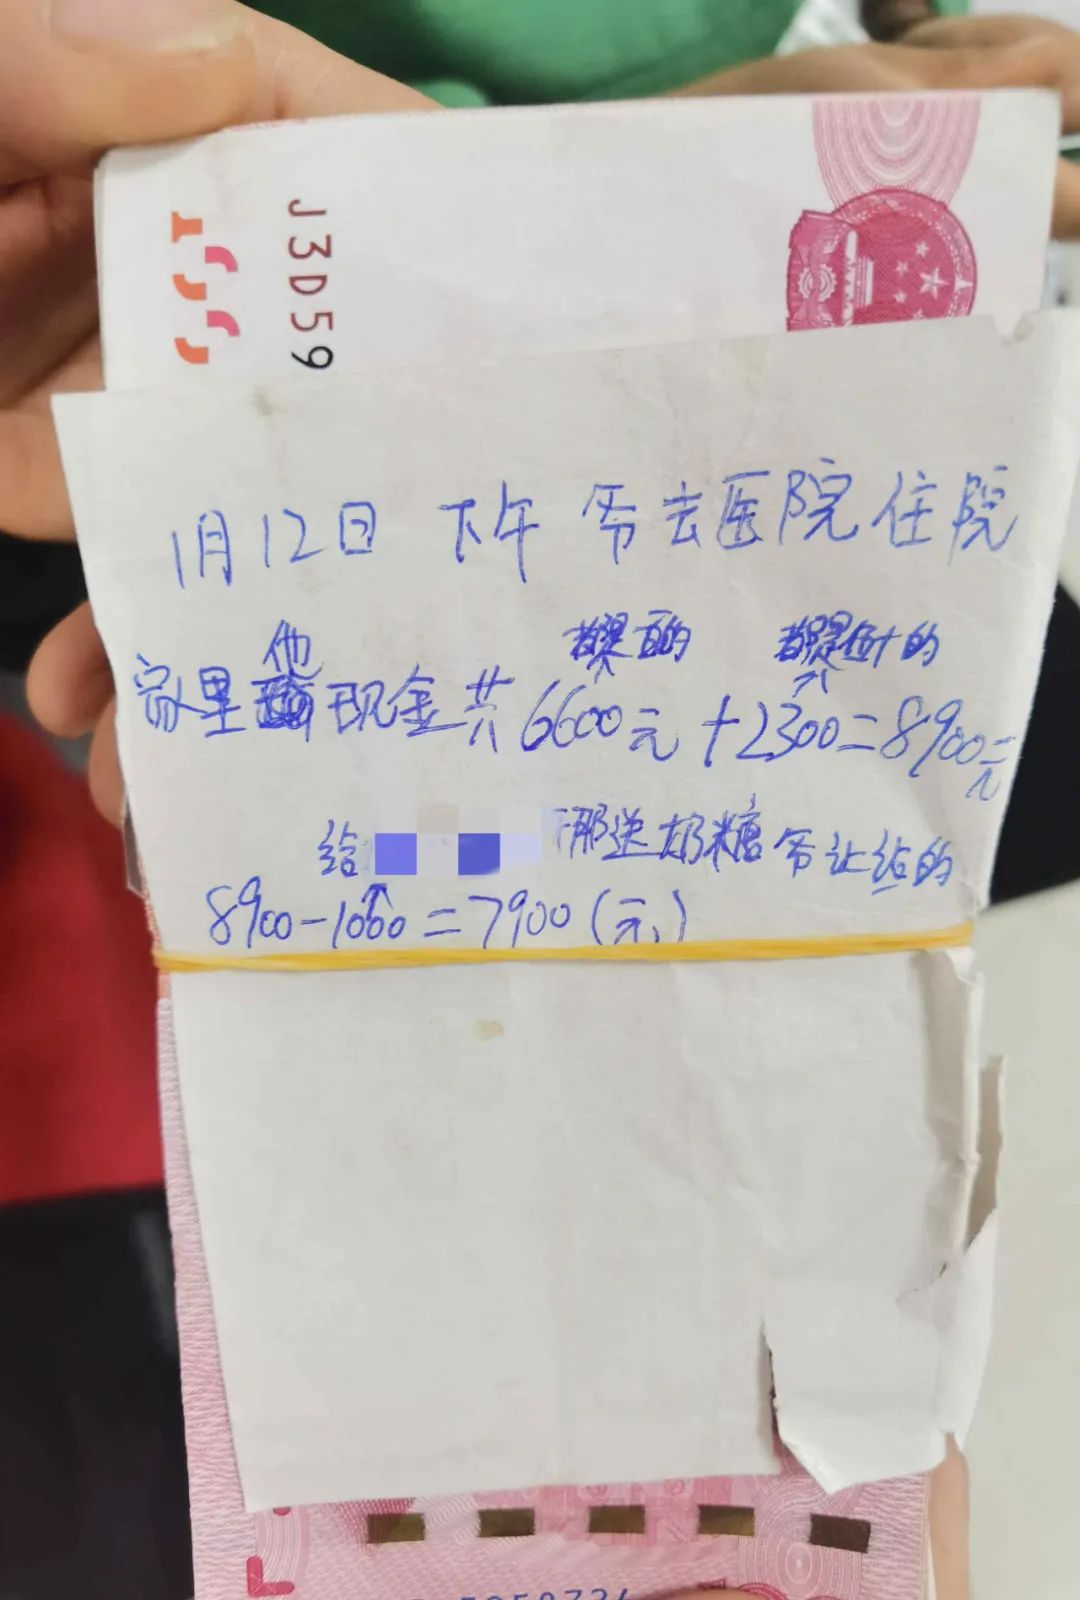 J3D59
1月12日 下午 爷去医院住院
他
都是百的 都是伍十的
家里现金共6600元+2300=8900元
给 那送奶糖爷让给的
8900-1000=7900(元)